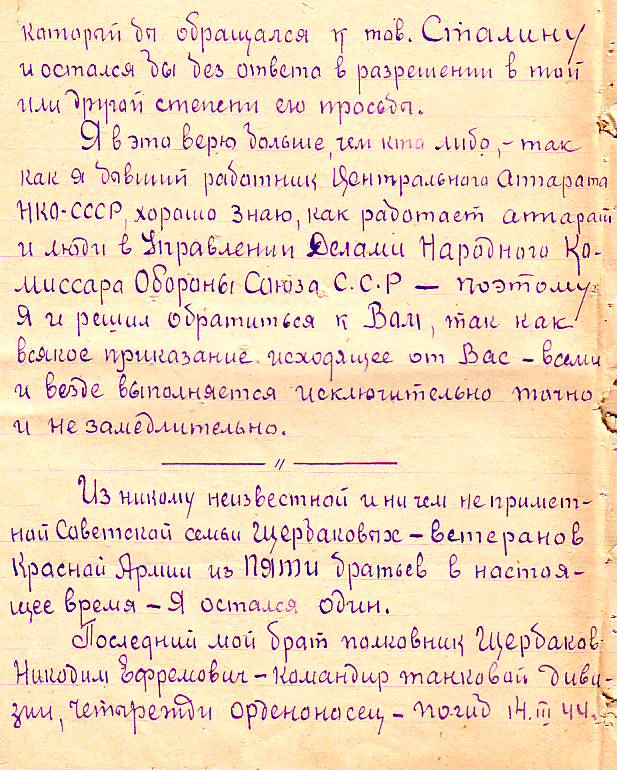 который бы обращался к тов. Сталину
и остался бы без ответа в разрешении в той
или другой степени его просьбы.
Я в это верю больше, чем кто либо, - так
как я бывший работник Центрального Аппарата
НКО-СССР, хорошо знаю, как работает аппарат
и люди в Управлении Делами Народного Ко-
миссара Обороны Союза С.С.Р — поэтому
Я и решил обратиться к Вам, так как
всякое приказание исходящее от Вас - всеми
и везде выполняется исключительно точно
и незамедлительно.
— " —
Из никому неизвестной и ни чем не примет-
ной Советской семьи Щербаковых - ветеранов
Красной Армии из ПЯТИ братьев в настоя-
щее время - Я остался один.
Последний мой брат полковник Щербаков
Никодим Ефремович - командир танковой диви-
зии, четырежди орденоносец - погиб 14.III 44.